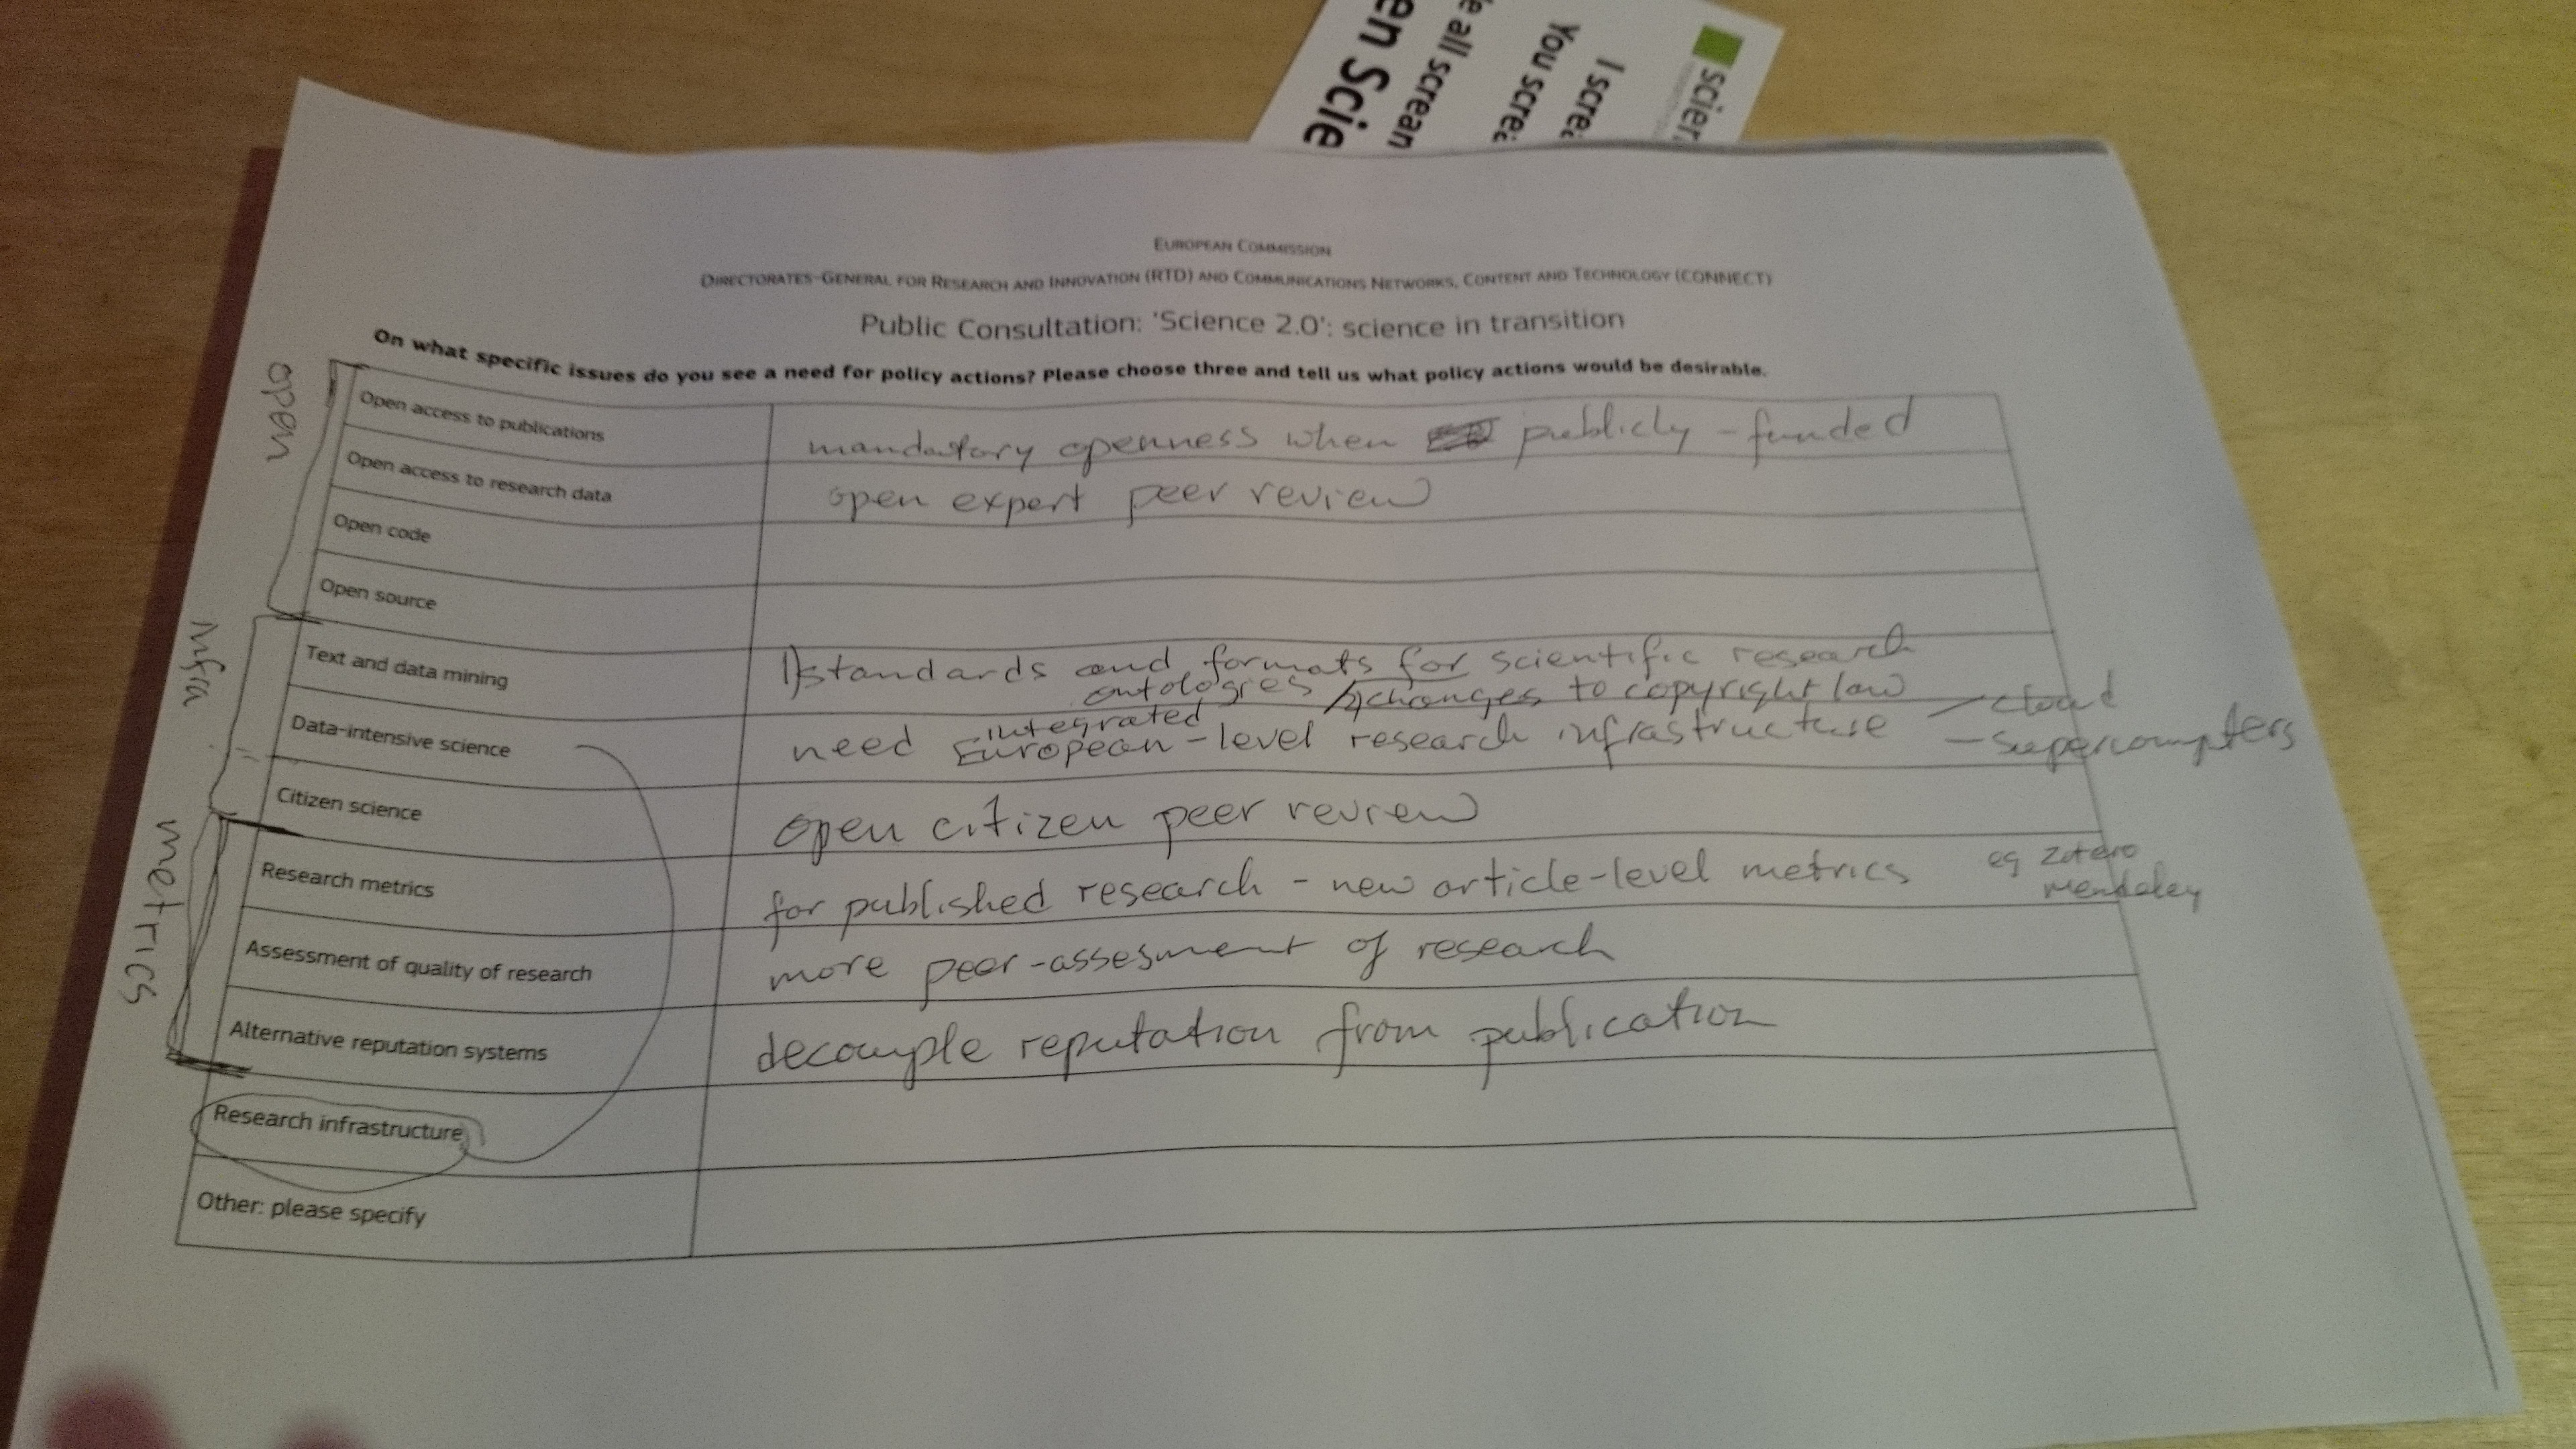 en Scie
e all screan
You screa
I screa
scien
EUROPEAN COMMISSION
DIRECTORATES-GENERAL FOR RESEARCH AND INNOVATION (RTD) AND COMMUNICATIONS NETWORKS, CONTENT AND TECHNOLOGY (CONNECT)
Public Consultation: 'Science 2.0': science in transition
On what specific issues do you see a need for policy actions? Please choose three and tell us what policy actions would be desirable.
open
Open access to publications
mandatory openness when publicly-funded
Open access to research data
open expert peer review
Open code
Open source
Infra
Text and data mining
1) standards and formats for scientific research
ontologies 2) changes to copyright law
Data-intensive science
need integrated European-level research infrastructure
- cloud
- supercompters
Citizen science
open citizen peer review
metrics
Research metrics
for published research - new article-level metrics
eg Zotero
Mendeley
Assessment of quality of research
more peer-assesment of research
Alternative reputation systems
decouple reputation from publication
Research infrastructure
Other: please specify